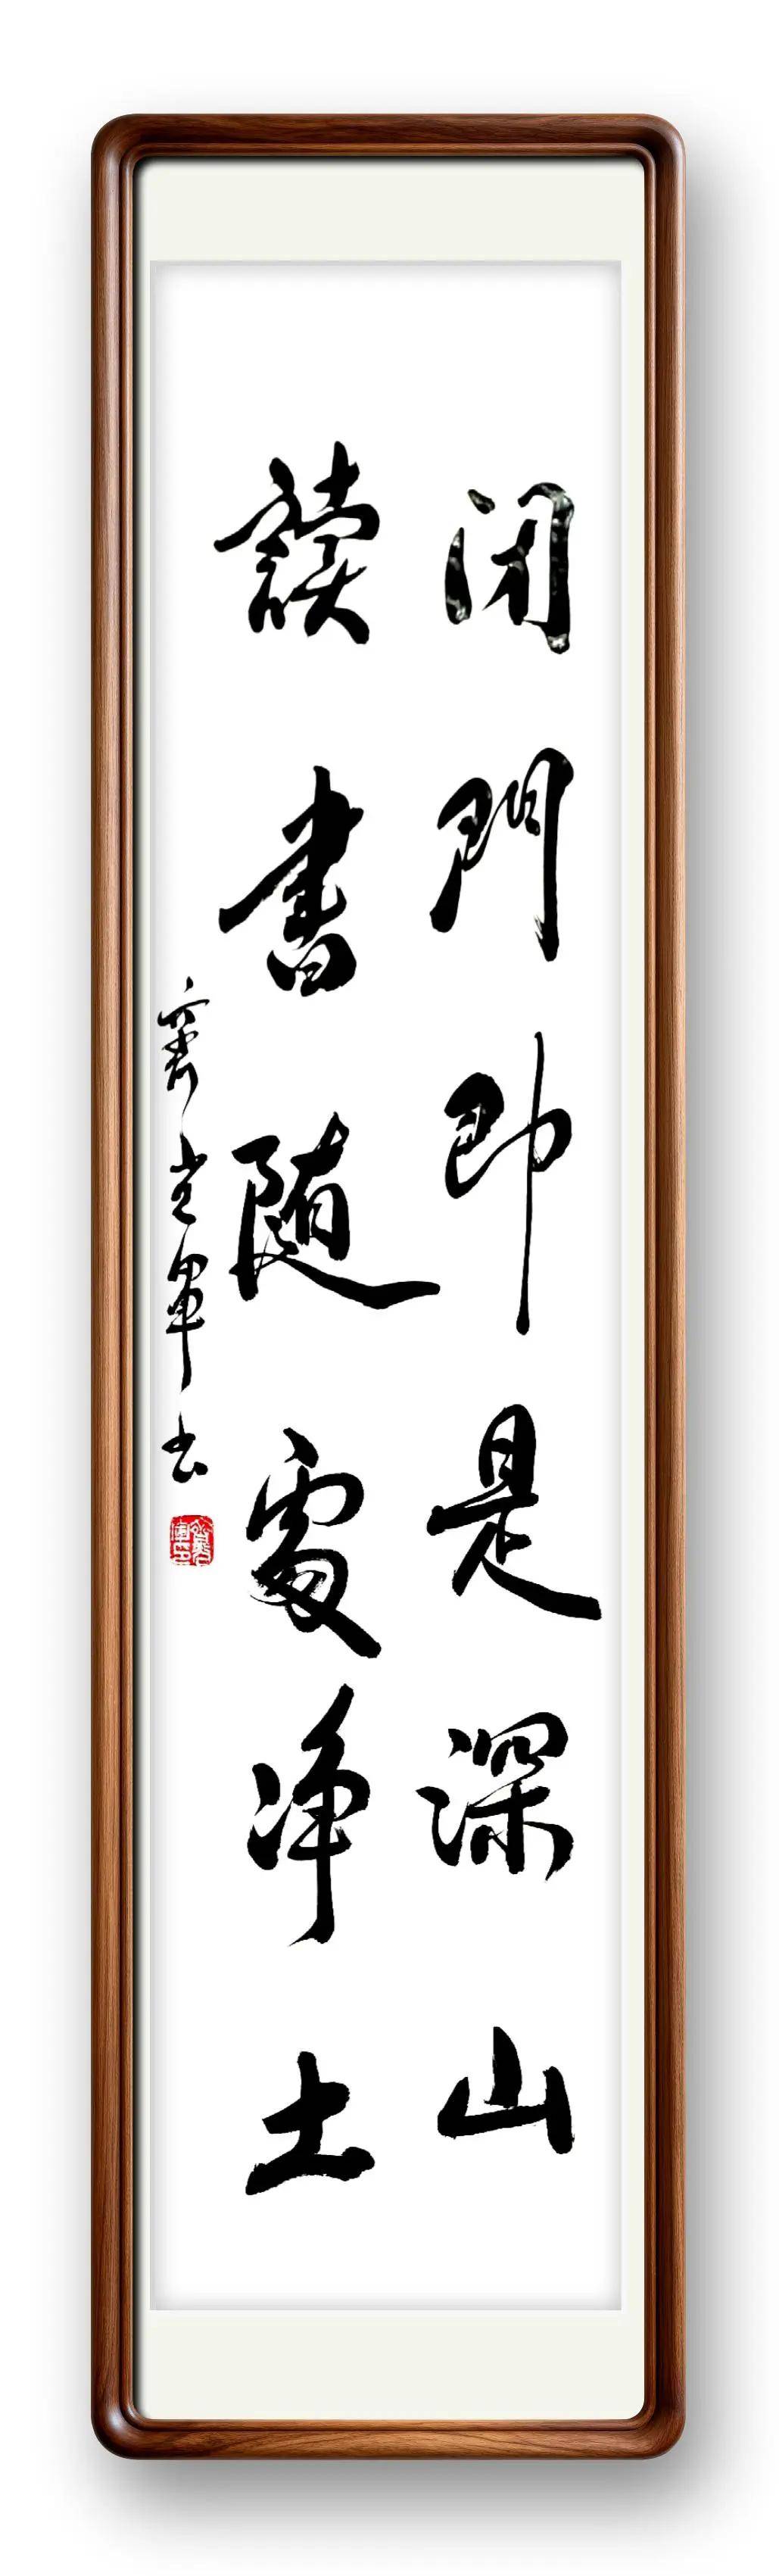 闭門即是深山
讀書随處净土
書